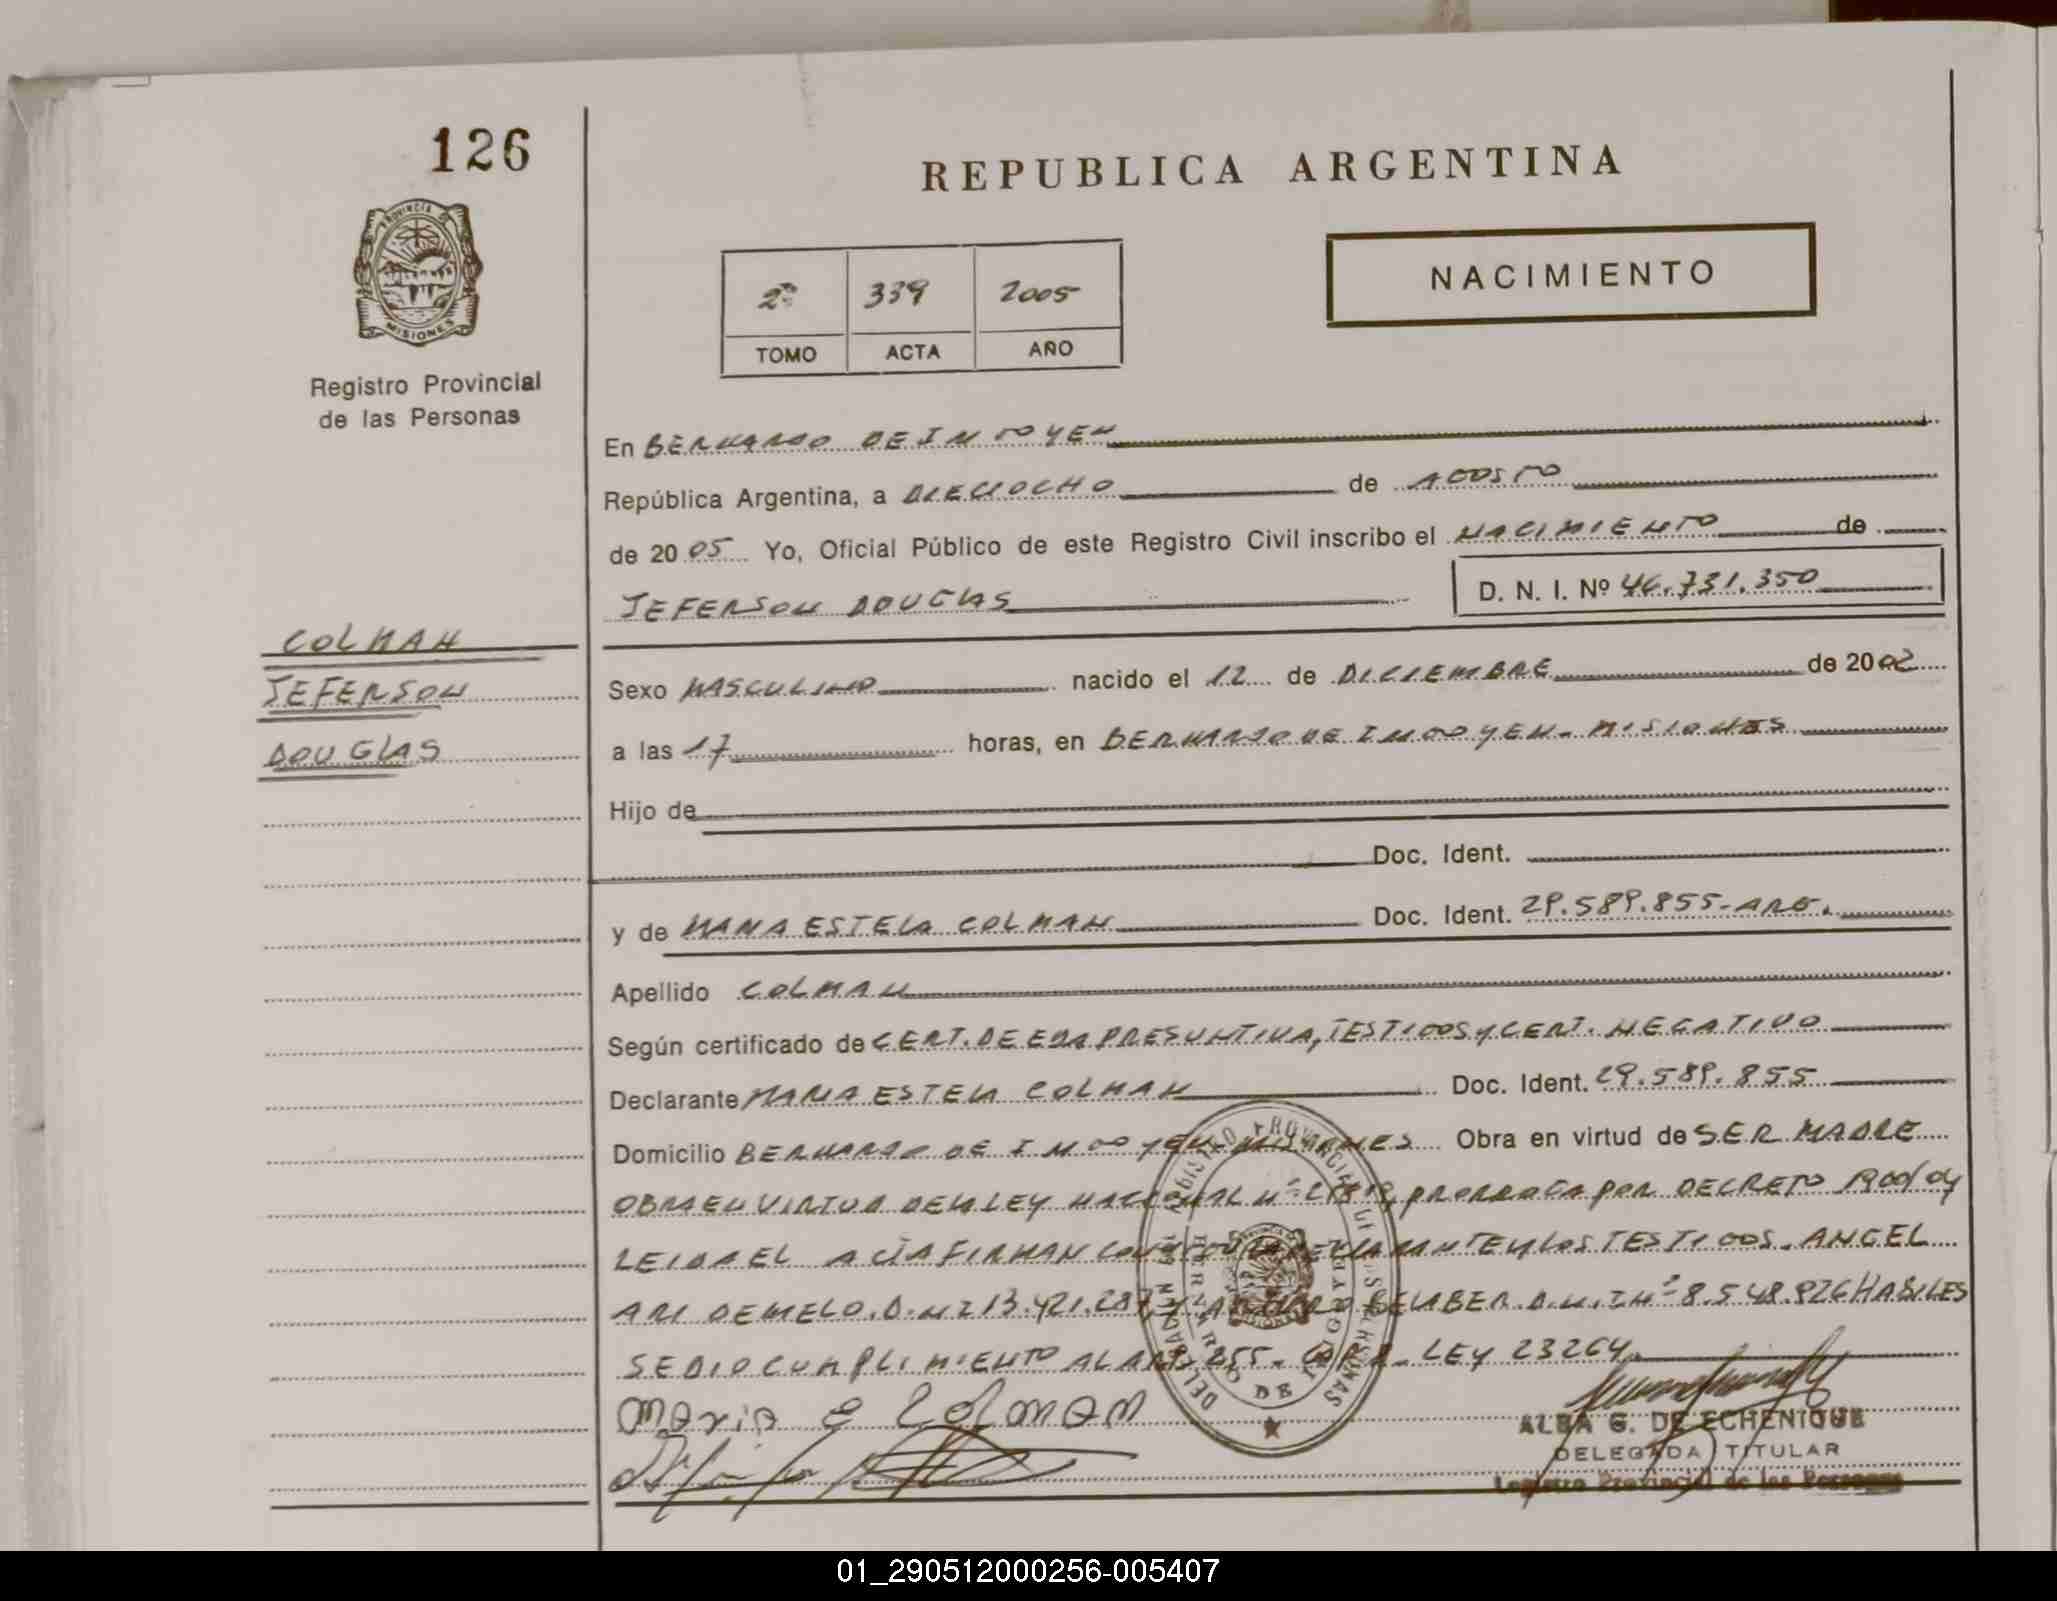 126
REPUBLICA ARGENTINA
PROVINCIA DE
MISIONES
Registro Provincial
de las Personas
2º 339 2005
TOMO ACTA AÑO
NACIMIENTO
En BERNARDO DE IRIGOYEN
República Argentina, a DIECIOCHO de AGOSTO
de 2005 Yo, Oficial Público de este Registro Civil inscribo el NACIMIENTO de
JEFERSON DOUGLAS D. N. I. Nº 46.731.350
COLMAN
JEFERSON
DOUGLAS
Sexo MASCULINO nacido el 12 de DICIEMBRE de 2002
a las 17 horas, en BERNARDO DE IRIGOYEN - MISIONES
Hijo de
Doc. Ident.
y de MARIA ESTELA COLMAN Doc. Ident. 29.589.855-ARG.
Apellido COLMAN
Según certificado de CERT. DE EDA PRESUNTIVA, TESTIGOS Y CERT. NEGATIVO
Declarante MARIA ESTELA COLMAN Doc. Ident. 29.589.855
Domicilio BERNARDO DE IRIGOYEN - MISIONES Obra en virtud de SER MADRE
OBRA EN VIRTUD DE LA LEY NACIONAL Nº PRORROGA POR DECRETO 1900/04
LEIDA EL ACTA FIRMAN LA DECLARANTE Y LOS TESTIGOS. ANGEL
ARI DEMELO. D.N.I 13.421.287 Y BELABER. D.N.I Nº 8.548.926 HABILES
SE DIO CUMPLIMIENTO AL ART. 255 - LEY 23264
Maria E Colman
DELEGACION REGISTRO PROVINCIAL DE LAS PERSONAS
BERNARDO DE IRIGOYEN
ALBA G. DE ECHENIQUE
DELEGADA TITULAR
Registro Provincial de las Personas
01_290512000256-005407